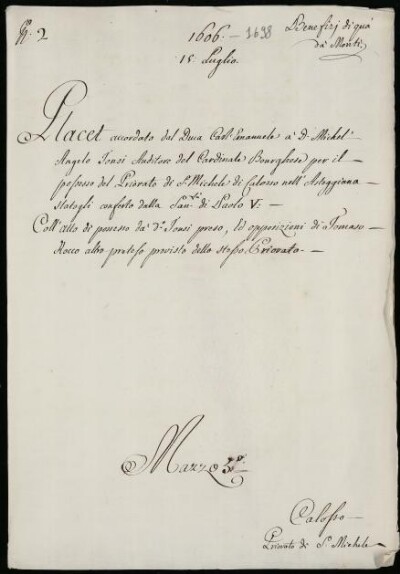 N. 2
1606. - 1698
Benefizj di quà
da' Monti
15. Luglio.
Placet accordato dal Duca Carlo Emanuele a' D. Michel'
Angelo Tonsi Auditore del Cardinale Boreghese per il
possesso del Priorato di S. Michele di Calosso nell'Asteggiana
statogli conferto dalla San.tà di Paolo V.
Coll'atto di possesso da' d.o Tonsi preso, ed opposizioni di Tomaso
Rocco altro preteso provisto dello stesso Priorato.
Mazzo 3.o
Calosso
Priorato di S. Michele